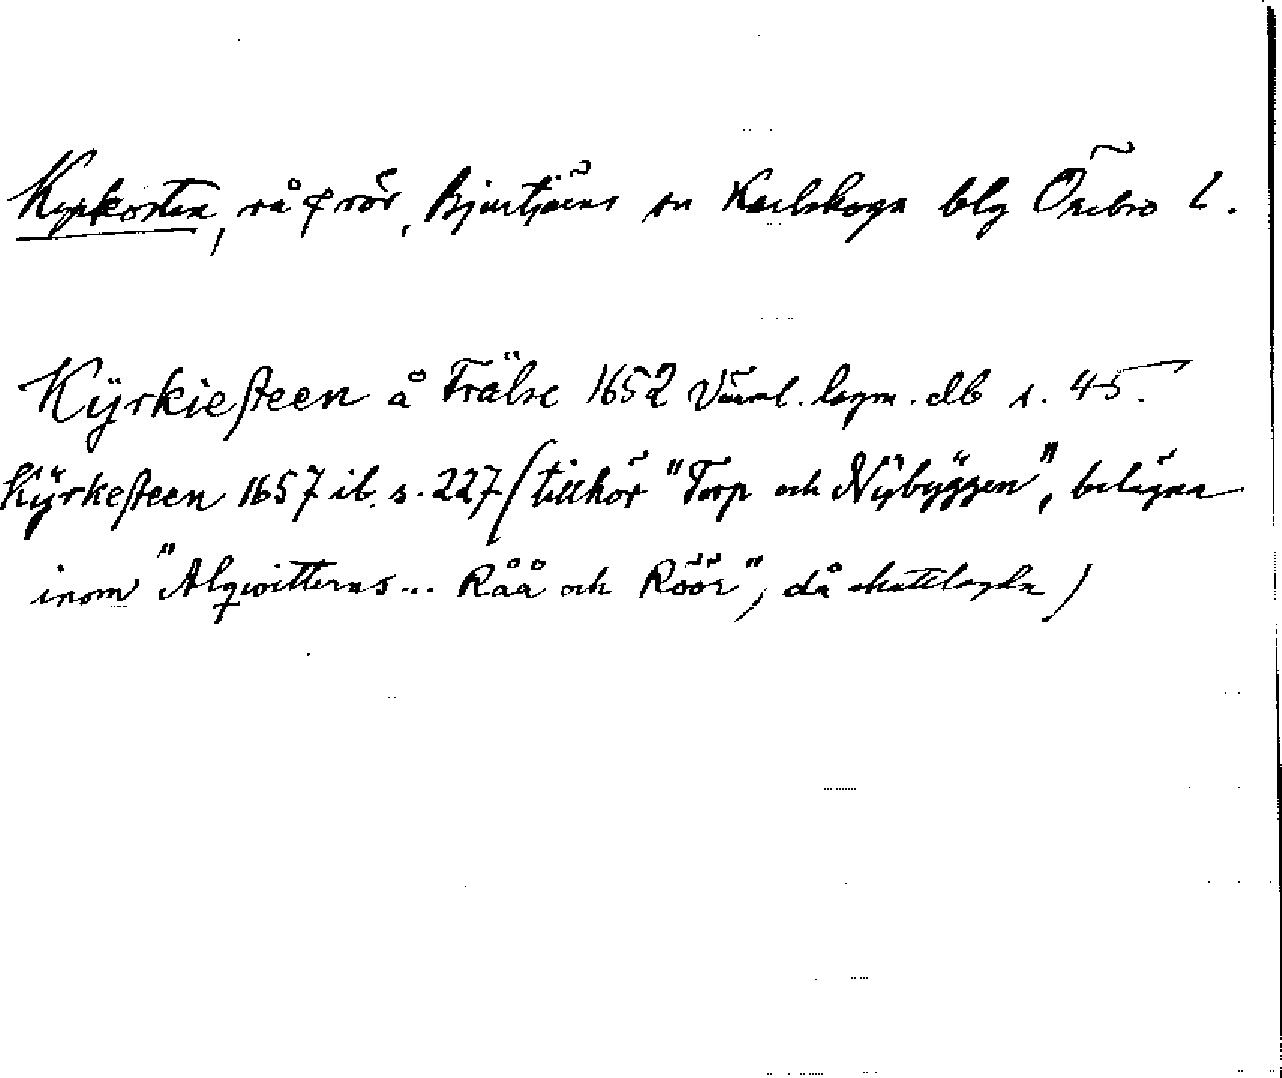 Kyrkosten, rå & rör, Bjurtjärns sn Karlskoga blg Örebro l.
Kÿrkiesteen å Frälse 1652 Värml. lagm. db s. 45.
Kÿrkesteen 1657 ib. s. 227 (tillhör "Torp och Nÿbÿggen", belägna
inom "Alqwitterns... Råå och Röör", då skattlagda)